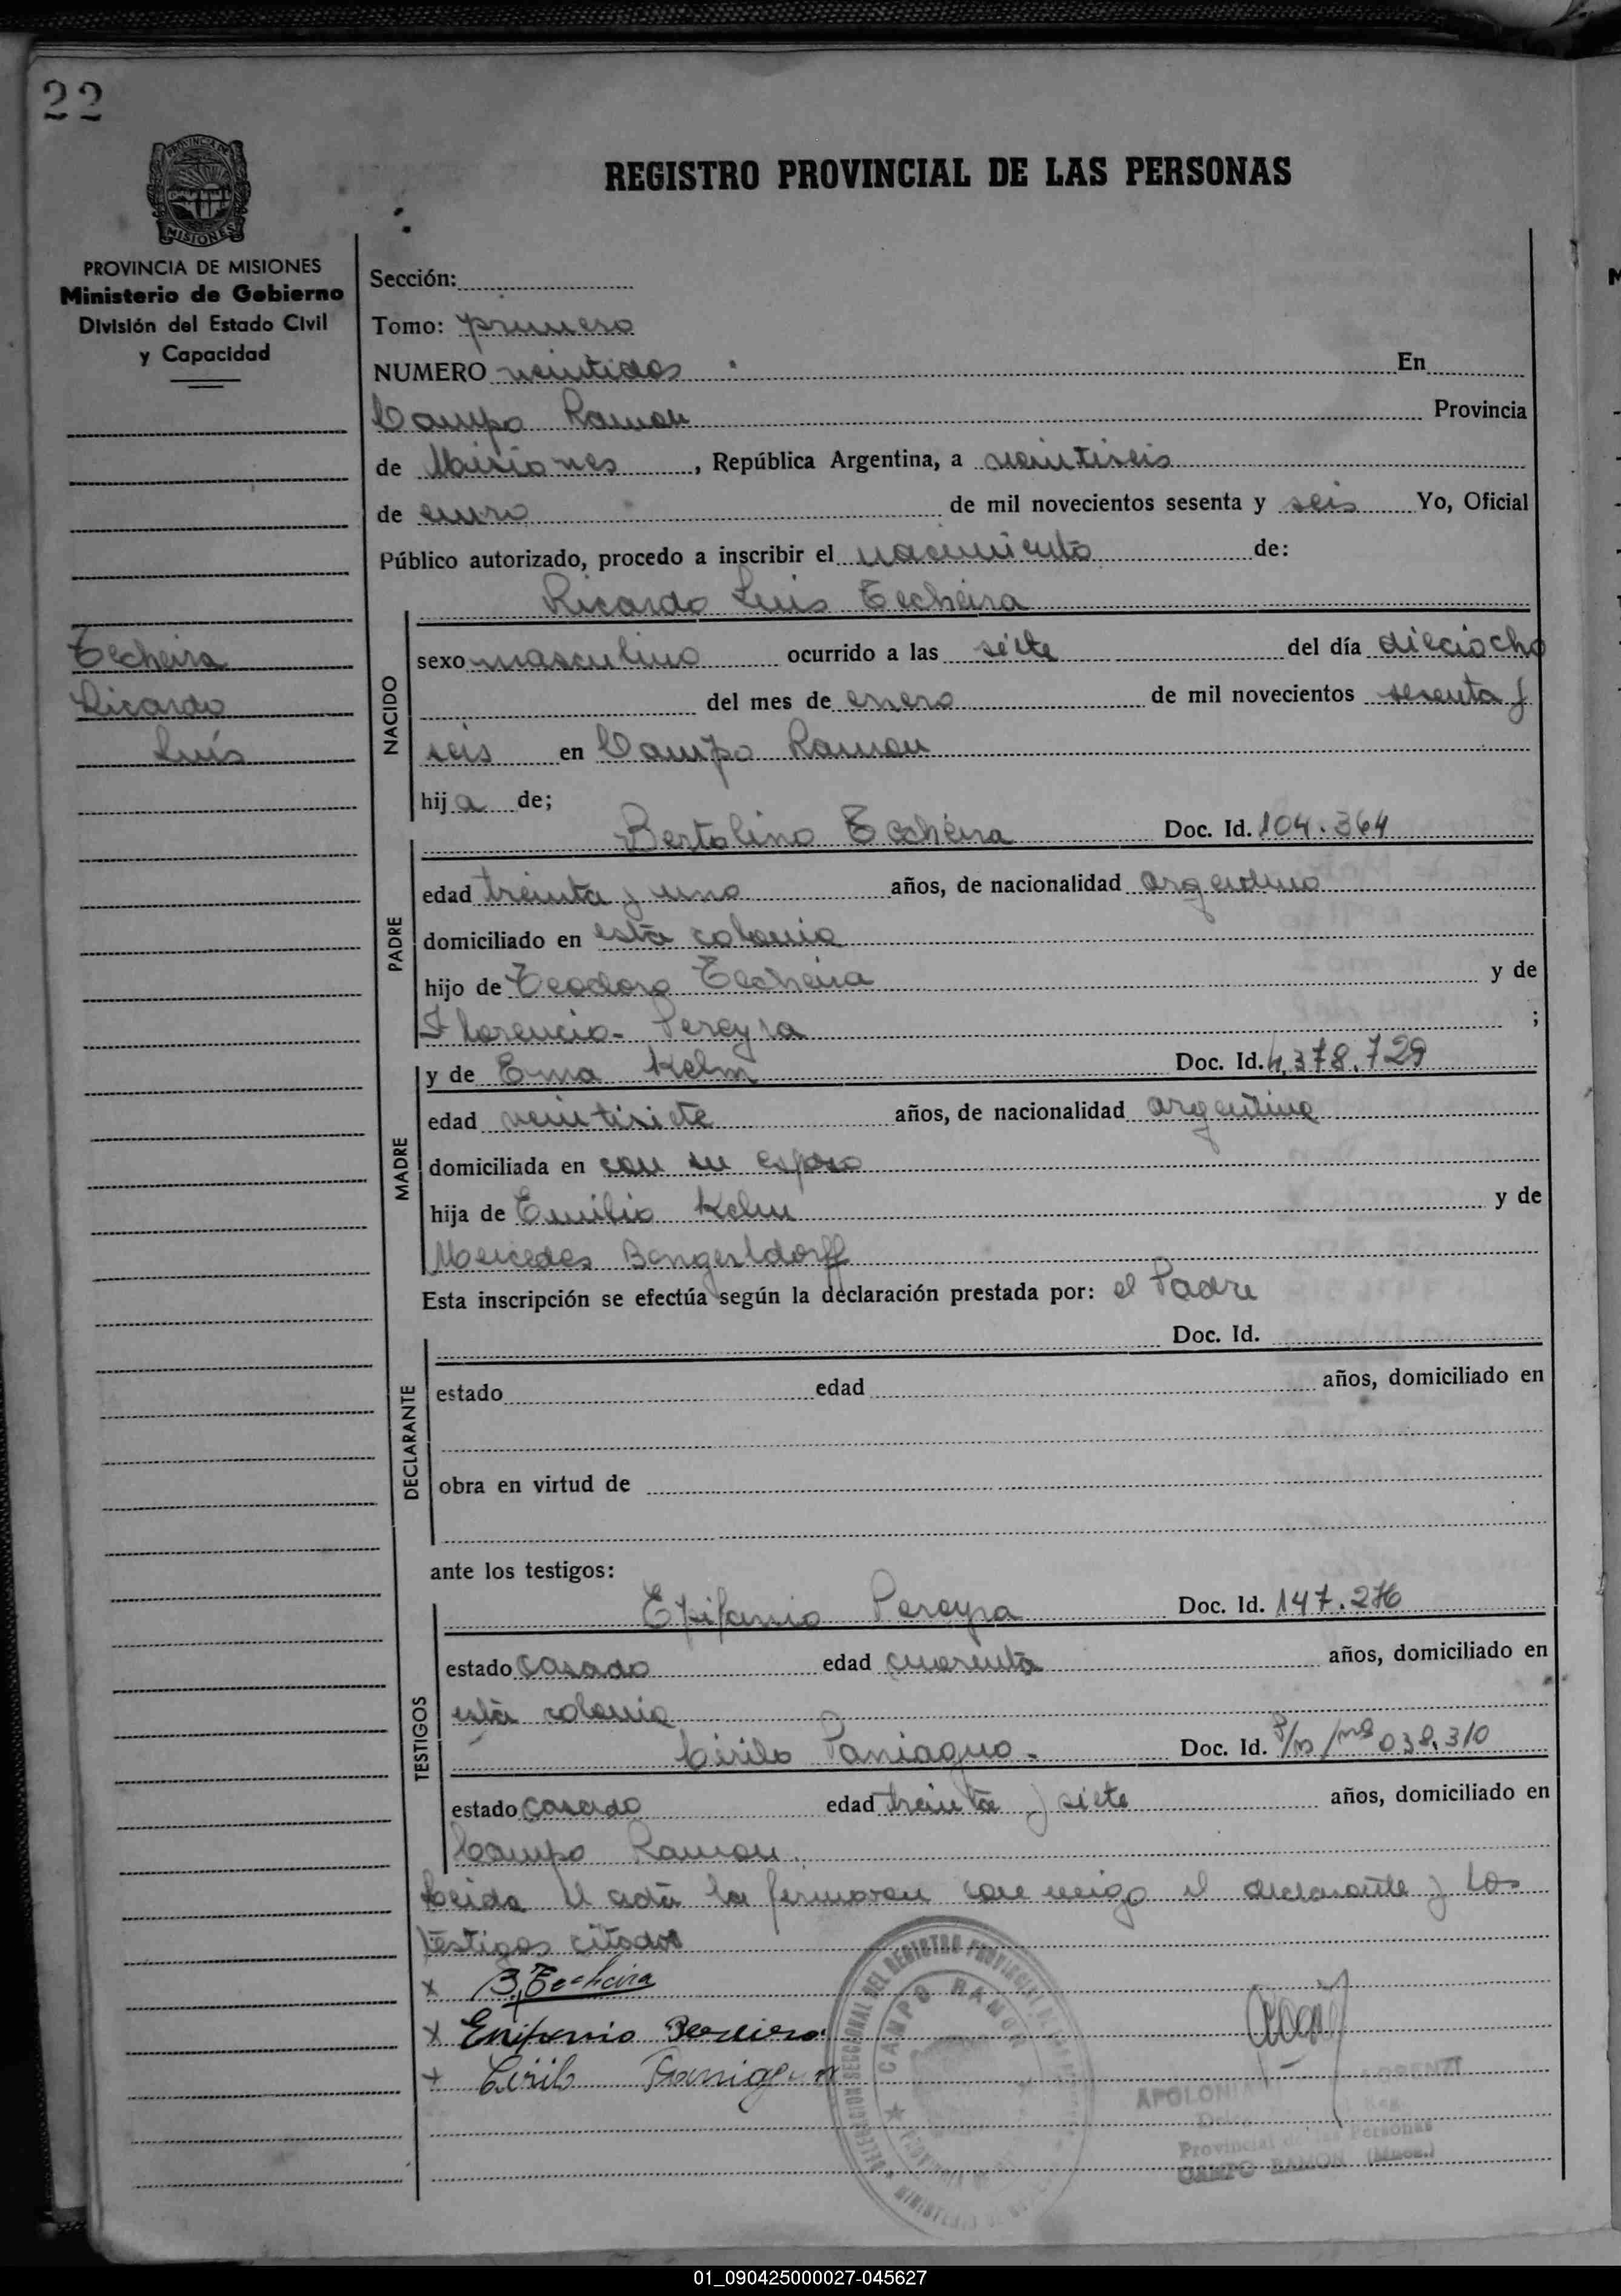 22
PROVINCIA DE
MISIONES
REGISTRO PROVINCIAL DE LAS PERSONAS
PROVINCIA DE MISIONES
Ministerio de Gobierno
División del Estado Civil
y Capacidad
Sección:
Tomo: primero
NUMERO veintidos En
Campo Ramon Provincia
de Misiones, República Argentina, a veintiseis
de enero de mil novecientos sesenta y seis Yo, Oficial
Público autorizado, procedo a inscribir el nacimiento de:
Ricardo Luis Techeira
Techeira
Ricardo
Luis
NACIDO
sexo masculino ocurrido a las siete del día dieciocho
del mes de enero de mil novecientos sesenta y
seis en Campo Ramon
hija de;
Bertolino Techeira Doc. Id. 104.364
PADRE
edad treinta y uno años, de nacionalidad argentino
domiciliado en esta colonia
hijo de Teodoro Techeira y de
Florencia Pereyra ;
y de Ema Kelm Doc. Id. 4.378.729
MADRE
edad veintisiete años, de nacionalidad argentina
domiciliada en con su esposo
hija de Emilio Kelm y de
Mercedes Bengertdorff
Esta inscripción se efectúa según la declaración prestada por: el Padre
Doc. Id.
DECLARANTE
estado edad años, domiciliado en
obra en virtud de
ante los testigos:
Epifanio Pereyra Doc. Id. 147.276
TESTIGOS
estado casado edad cuarenta años, domiciliado en
esta colonia
Cirilo Paniagua Doc. Id. 038.310
estado casado edad treinta y siete años, domiciliado en
Campo Ramon.
Leida el acta la firmaron conmigo el declarante y los
testigos citados
x B. Techeira
x Epifanio Pereira
x Cirilo Paniagua
DELEGACION SECCIONAL DEL REGISTRO PROVINCIAL DE
CAMPO RAMON
APOLONIA
Provincial de las Personas
CAMPO RAMON (Mnes.)
01_090425000027-045627